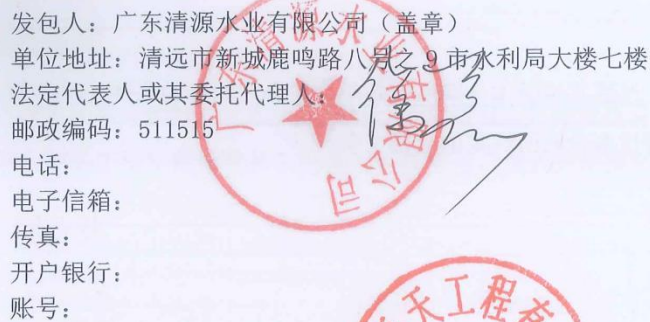 发包人：广东清源水业有限公司（盖章）
单位地址：清远市新城鹿鸣路八号之9市水利局大楼七楼
法定代表人或其委托代理人：
邮政编码：511515
电话：
电子信箱：
传真：
开户银行：
账号：
广东清源水业有限公司
天工程有